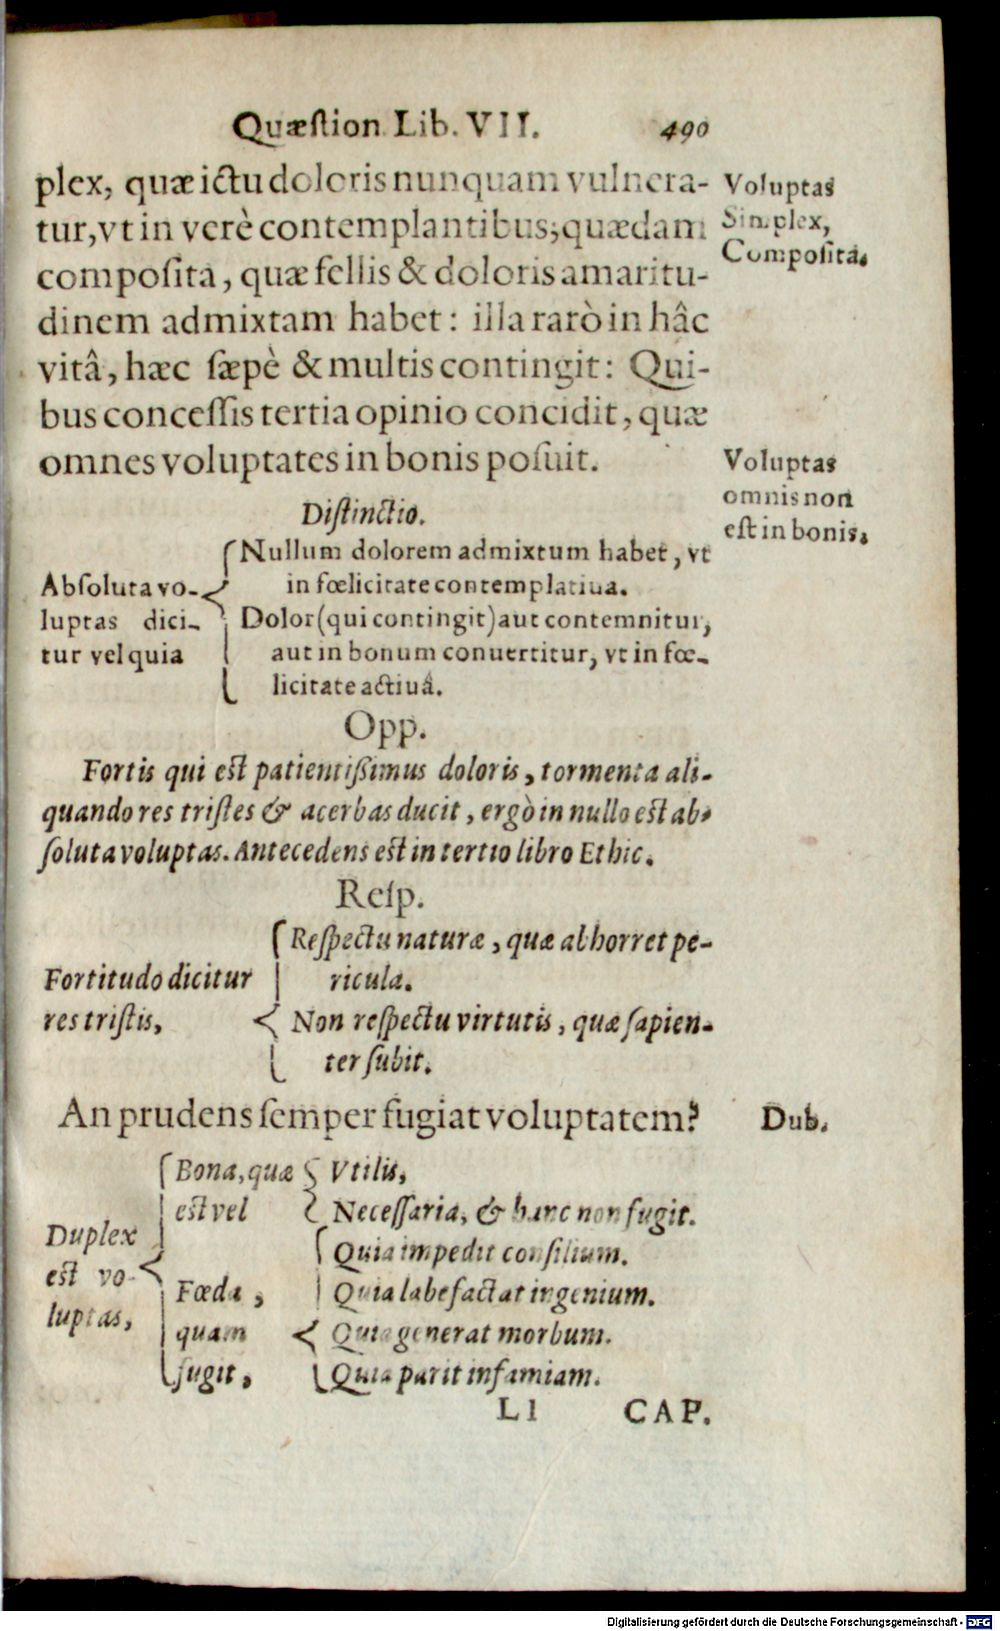 Quæstion Lib. VII. 490
plex, quæ ictu doloris nunquam vulnera-
tur, vt in verè contemplantibus; quædam
composita, quæ fellis & doloris amaritu-
dinem admixtam habet: illa rarò in hâc
vitâ, hæc sæpè & multis contingit: Qui-
bus concessis tertia opinio concidit, quæ
omnes voluptates in bonis posuit.
Voluptas
Simplex,
Composita.
Voluptas
omnis non
est in bonis.
Distinctio.
Absoluta vo-
luptas dici-
tur vel quia
Nullum dolorem admixtum habet, vt
in fœlicitate contemplatiua.
Dolor (qui contingit) aut contemnitur,
aut in bonum conuertitur, vt in fœ-
licitate actiuâ.
Opp.
Fortis qui est patientißimus doloris, tormenta ali-
quando res tristes & acerbas ducit, ergò in nullo est ab-
soluta voluptas. Antecedens est in tertio libro Ethic.
Resp.
Fortitudo dicitur
res tristis,
Respectu naturæ, quæ abhorret pe-
ricula.
Non respectu virtutis, quæ sapien-
ter subit.
An prudens semper fugiat voluptatem?
Dub.
Duplex
est vo-
luptas,
Bona, quæ
est vel
Vtilis,
Necessaria, & hanc non fugit.
Fœda,
quam
fugit,
Quia impedit consilium.
Quia labefactat ingenium.
Quia generat morbum.
Quia parit infamiam.
Ll CAP.
Digitalisierung gefördert durch die Deutsche Forschungsgemeinschaft - DFG